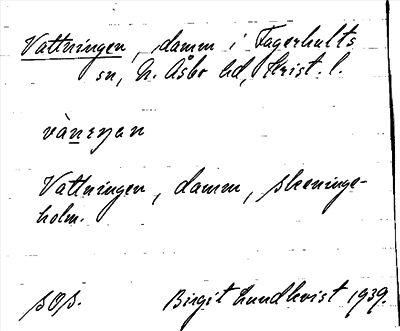 Vattningen, damm i Fagerhults
sn, N. Åsbo hd, Krist. l.
Vattningen, damm, Skeninge-
holm.
SOS. Birgit Lundkvist 1939.